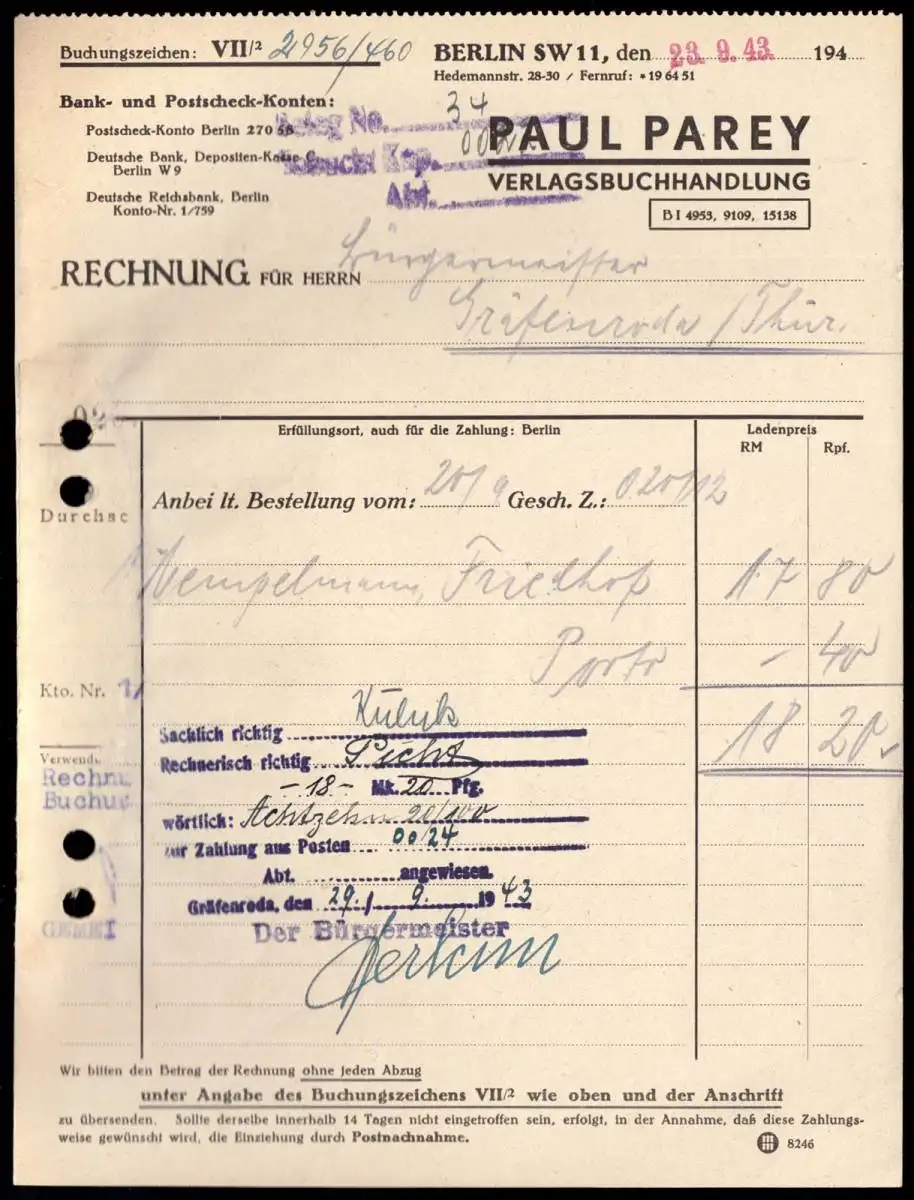 Buchungszeichen: VII/2 2956/460
BERLIN SW 11, den 23. 9. 43. 194
Hedemannstr. 28-30 / Fernruf: *19 64 51
Bank- und Postscheck-Konten:
Postscheck-Konto Berlin 270 58
Deutsche Bank, Depositen-Kasse C,
Berlin W 9
Deutsche Reichsbank, Berlin
Konto-Nr. 1/759
Beleg No. 34
Kap. 00
Abt.
PAUL PAREY
VERLAGSBUCHHANDLUNG
B I 4953, 9109, 15138
RECHNUNG FÜR HERRN Bürgermeister
Gräfenroda / Thür.
Erfüllungsort, auch für die Zahlung: Berlin
Ladenpreis
RM Rpf.
Anbei lt. Bestellung vom: 20/9 Gesch. Z.: 020/12
Durchsc
Friedhof 17 80
Porto - 40
Kto. Nr.
18 20
Sachlich richtig
Rechnerisch richtig
- 18 - Mk. 20 Pfg.
wörtlich: Achtzehn 20/100
zur Zahlung aus Posten 00/24
Abt. angewiesen.
Gräfenroda, den 29. / 9. 1943
Der Bürgermeister
Verwend
Rechnu
Buchu
GEMEI
Wir bitten den Betrag der Rechnung ohne jeden Abzug
unter Angabe des Buchungszeichens VII/2 wie oben und der Anschrift
zu übersenden. Sollte derselbe innerhalb 14 Tagen nicht eingetroffen sein, erfolgt, in der Annahme, daß diese Zahlungs-
weise gewünscht wird, die Einziehung durch Postnachnahme.
8246